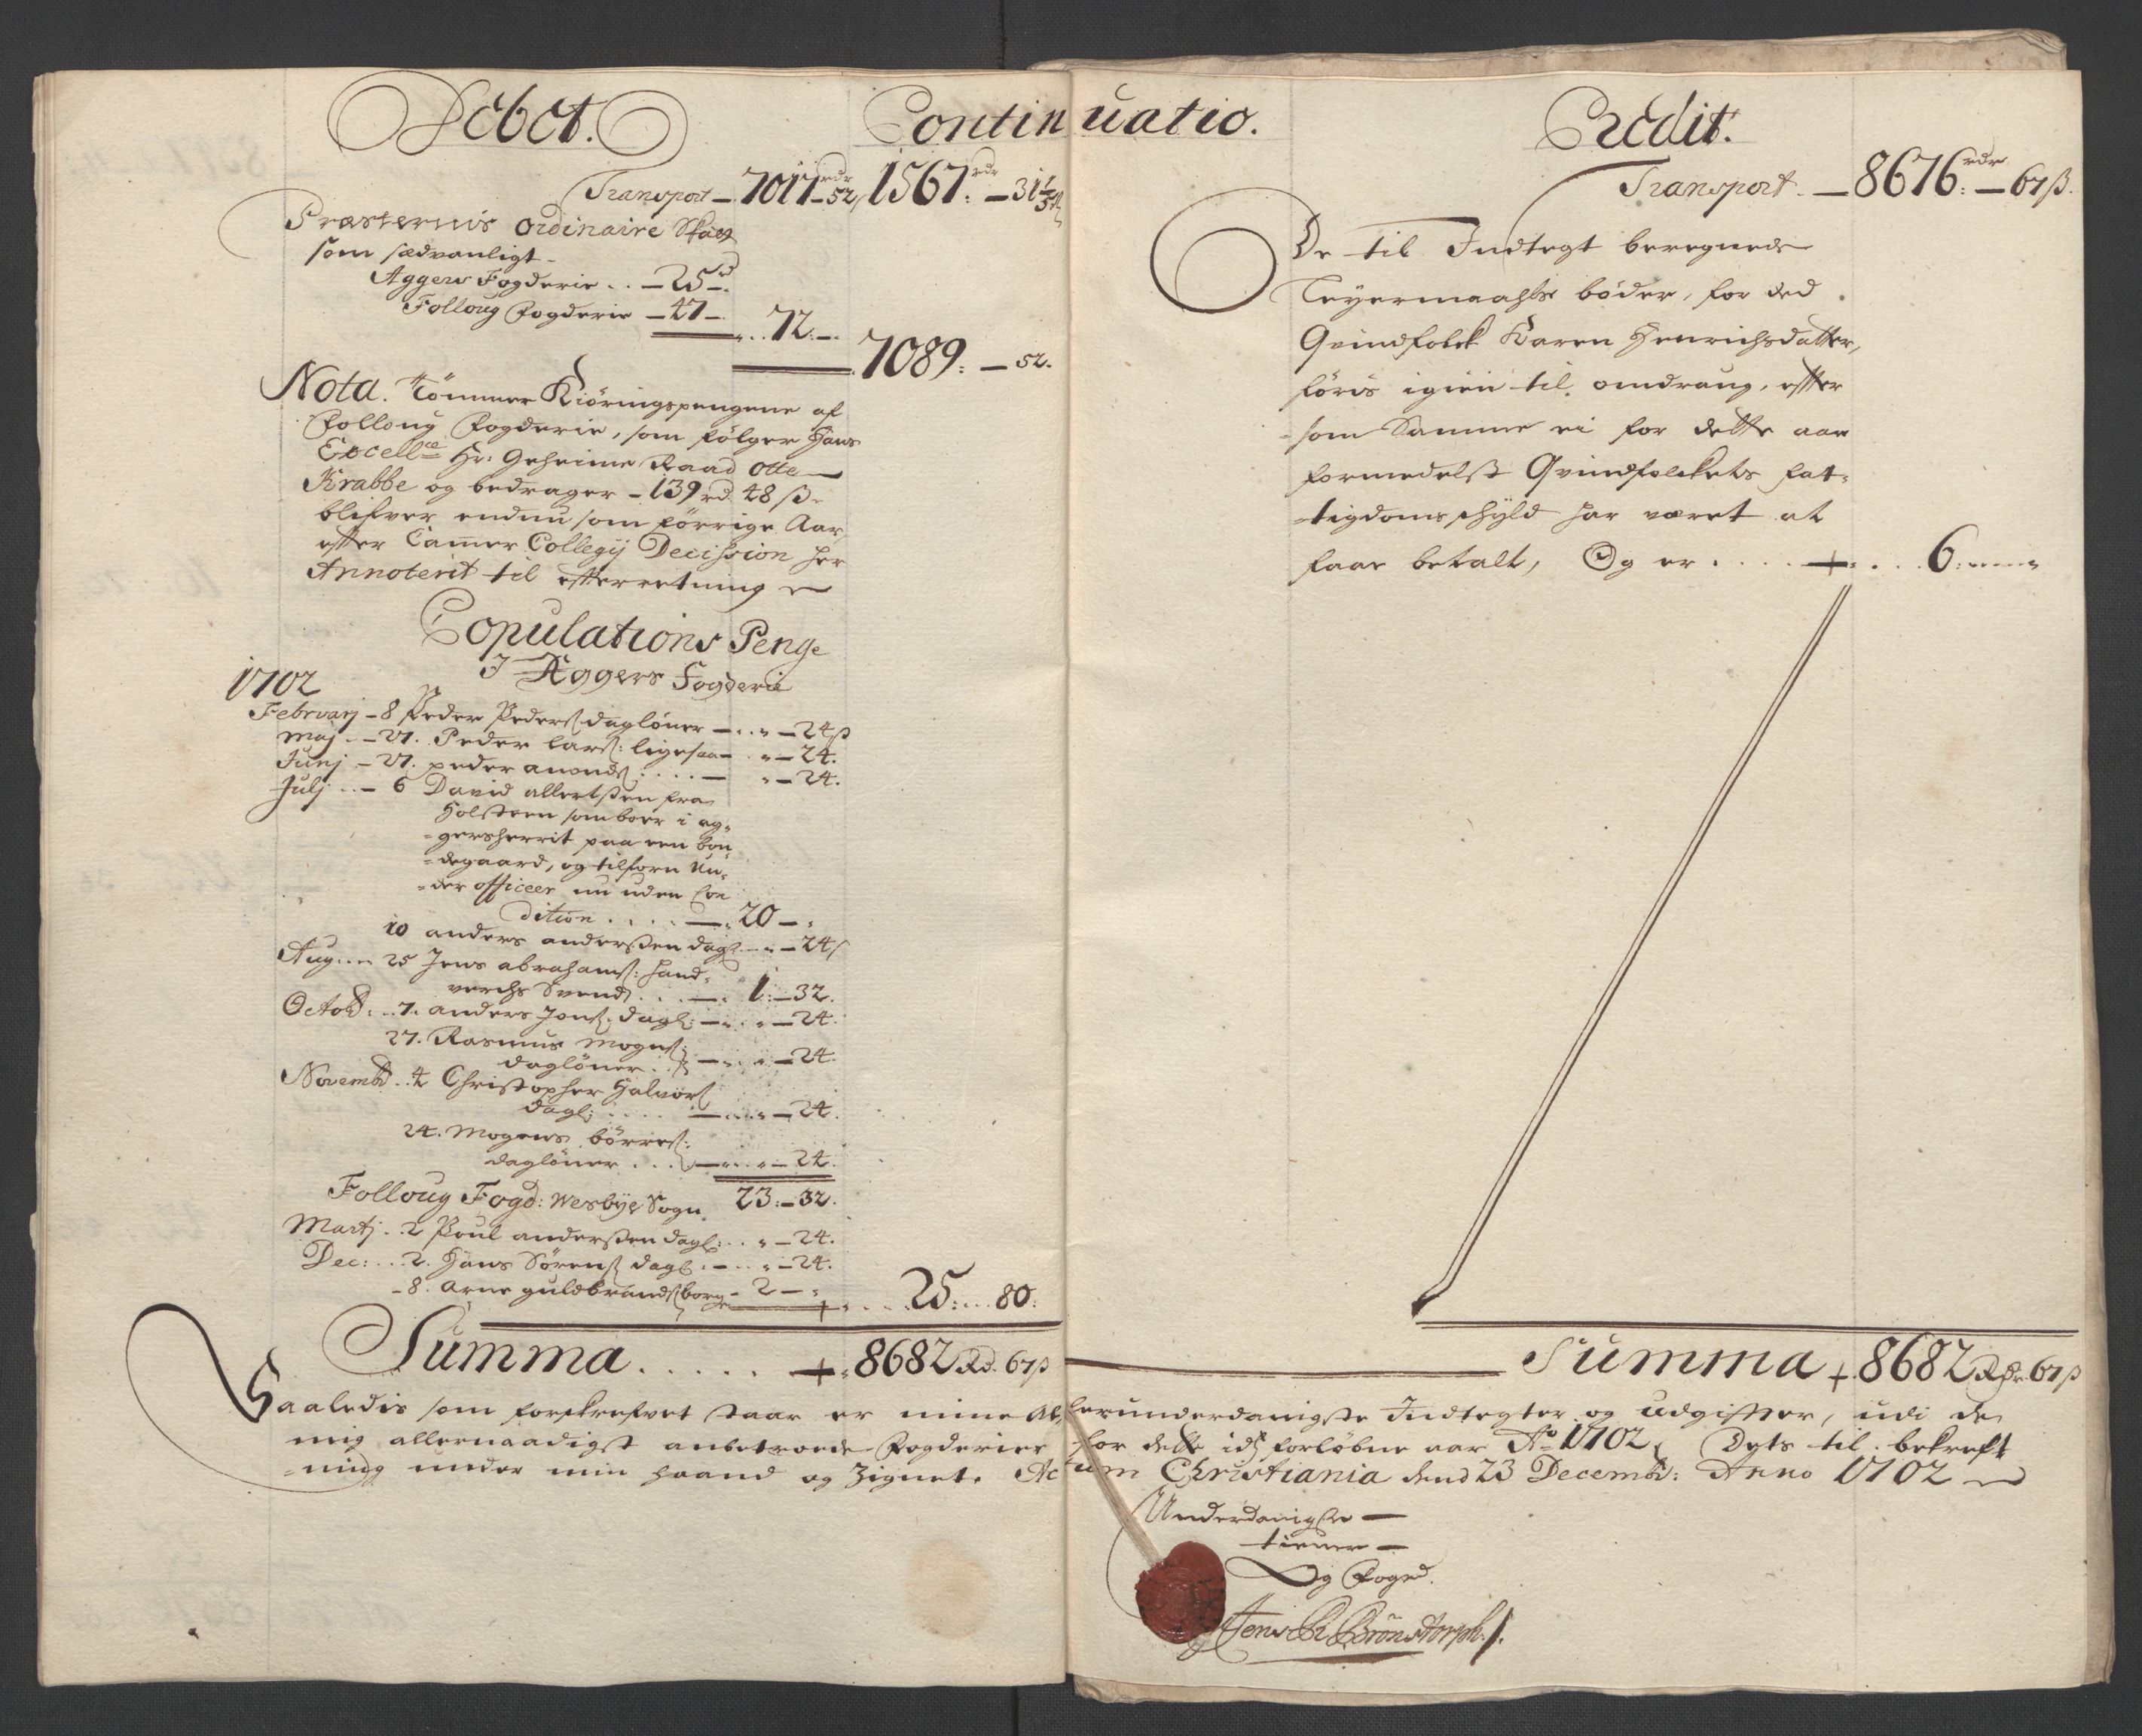 Debet.
Continuatio.
Transport – 7017 rdr – 52, 1567 rdr – 31 1/5 ß
Præsternis Ordinaire Skatt
som sædvanligt –
Aggers Fogderie . . – 25 –
Folloug Fogderie – 47 –
72: –
7089: – 52.
Nota. Tömmer Kiöringspengene af
Folloug Fogderie, som fölger Hans
Excellce Hr: Geheime Raad Otte
Krabbe og bedrager – 139 rd 48 ß
blifver endnu som förrige Aar,
effter Camer Collegij Decission her
Annoterit til effterretning
Copulations Penge
I Aggers Fogderie
1702
Februarj – 8 Peder Peders. daglöner – 24 ß
Maj – 27. Peder Lars: ligesaa – 24.
Junj – 27. peder anonds. – 24.
Julj – 6 David allertsen fra
Holsteen som boer i ag=
=gersherrit paa een bon
=degaard, og tilforn Un=
=der officeer nu uden Con
dition . . . . – 20 –
10 anders andersen dagl. – 24 ß
Aug – 25 Jens abrahams: hand=
verchs Svend . . . – 1: – 32.
Octob: . . 7. anders Jons. dagl: – 24.
27. Rasmus Mogns:
daglöner . . – 24.
Novemb . . 4 Christopher Halvors
dagl: . . . . – 24.
24. Mogens börres:
daglöner . . . – 24.
23: – 32.
Folloug Fogd: Wesbye Sogn
Martj . . 2 Poul andersen dagl: . . – 24.
Dec: . . . 2. Hans Sörens dagl. – 24.
– 8. Arne guldbrands borge – 2 –
25: . . . 80.
Summa . . . . . 8682 Rd. 67 ß
Credit.
Transport – 8676: rdr – 67 ß.
De til Indtegt beregnede
Leyermaahls böder, for ded
Qvindfolck Karen Henrichsdatter,
föris igien til omdraug, effter
=som Samme ei for dette aar
formedelst Qvindfolckets fat=
=tigdoms schyld har været at
faae betalt, Og er . . . . 6:
Summa 8682 Rdr. 67 ß
Saaledis som forskrefvet staar er mine Allerunderdanigste Indtegter og Udgiffter, udi de
mig allernaadigst anbetroede Fogderier for dette ids forlöbne aar Ao 1702, Dets til bekreft
=ning under min haand og Zignet. Actum Christiania dend 23 Decemb: Anno 1702
Underdanigste
tienner
Og Foged.